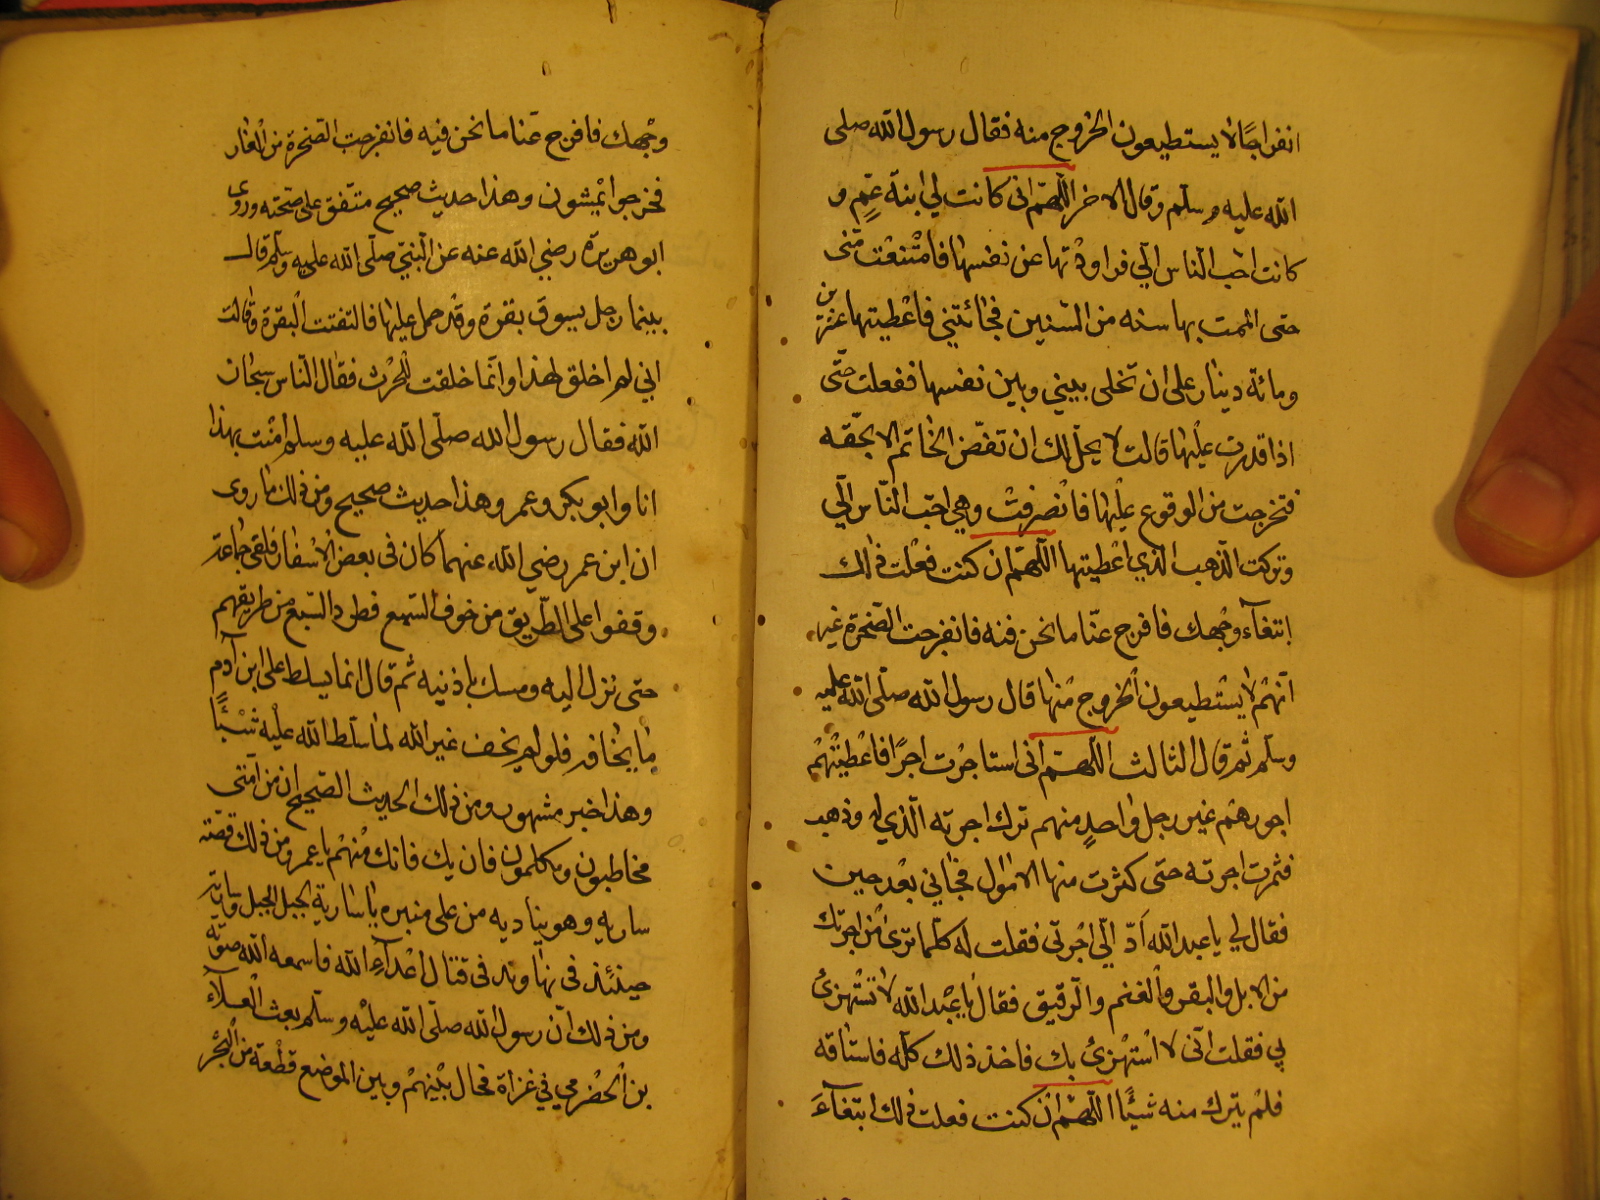 انفراجا لا يستطيعون الخروج منه فقال رسول الله صلى
الله عليه وسلم وقال الاخر اللهم انى كانت لي ابنة عم و
كانت احب الناس الي فراودتها عن نفسها فامتنعت منى
حتى المت بها سنه من السنين فجائتني فاعطيتها عشرين
ومائة دينار على ان تخلى بيني وبين نفسها ففعلت حتى
اذا قدرت عليها قالت لا يحل لك ان تفض الخاتم الا بحقه
فتحرجت من الوقوع عليها فانصرفت وهي احب الناس الي
وتركت الذهب الذي اعطيتها اللهم ان كنت فعلت ذلك
ابتغآء وجهك فافرج عنا ما نحن فيه فانفرجت الصخرة غير
انهم لا يستطيعون الخروج منها قال رسول الله صلى الله عليه
وسلم ثم قال الثالث اللهم انى استاجرت اجرا فاعطيتهم
اجورهم غير رجل واحد منهم ترك اجرته الذي له وذهب
فثمرت اجرته حتى كثرت منها الاموال فجاني بعد حين
فقال لي يا عبد الله اد الي اجرتى فقلت له كلما ترى من اجرتك
من الابل والبقر والغنم والرقيق فقال يا عبد الله لا تستهزئ
بي فقلت انى لا استهزئ بك فاخذ ذلك كله فاستاقه
فلم يترك منه شيئا اللهم ان كنت فعلت ذلك ابتغآء
وجهك فافرج عنا ما نحن فيه فانفرجت الصخرة من الغار
فخرجوا يمشون وهذا حديث صحيح متفق على صحته وروى
ابو هريرة رضي الله عنه عن النبي صلى الله عليه وسلم قال
بينما رجل يسوق بقرة وقد حمل عليها فالتفتت البقرة وقالت
اني لم اخلق لهذا وانما خلقت للحرث فقال الناس سبحان
الله فقال رسول الله صلى الله عليه وسلم امنت بهذا
انا وابو بكر وعمر وهذا حديث صحيح ومن ذلك ما روى
ان ابن عمر رضي الله عنهما كان فى بعض الاسفار فلقى جماعة
وقفوا على الطريق من خوف السبع فطرد السبع من طريقهم
حتى نزل اليه ومسك باذنيه ثم قال انما يسلط على ابن آدم
ما يخافه فلو لم يخف غير الله لما سلط الله عليه شيئا
وهذا خبر مشهور ومن ذلك الحديث الصحيح ان من امتى
مخاطبون ومكلمون فان يك فانك منهم يا عمر ومن ذلك قصته
ساريه وهو يناديه من على منبره يا سارية الجبل الجبل وسارية
حينئذ فى نهاوند فى قتال اعدآء الله فاسمعه الله صوته
ومن ذلك ان رسول الله صلى الله عليه وسلم بعث العلآء
بن الحضرمي في غزاة فحال بينهم وبين الموضع قطعة من البحر